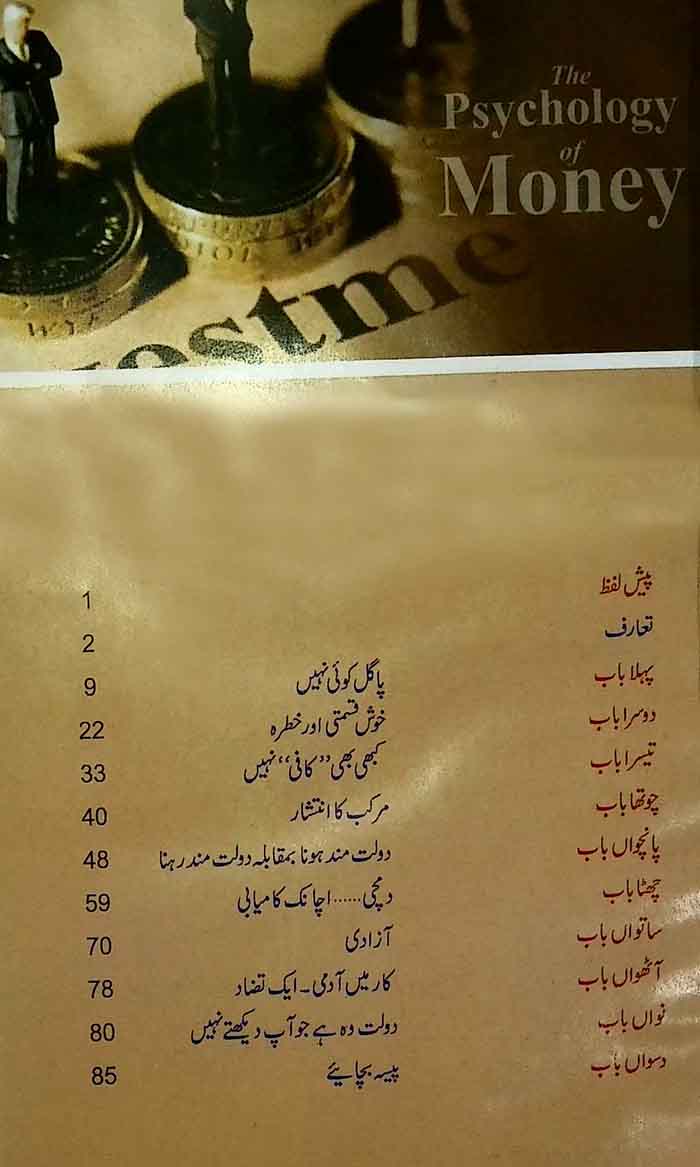 The
Psychology
of
Money
estme
پیش لفظ 1
تعارف 2
پہلا باب پاگل کوئی نہیں 9
دوسرا باب خوش قسمتی اور خطرہ 22
تیسرا باب کبھی بھی ”کافی“ نہیں 33
چوتھا باب مرکب کا انتشار 40
پانچواں باب دولت مند ہونا بمقابلہ دولت مند رہنا 48
چھٹا باب دمچی......اچانک کامیابی 59
ساتواں باب آزادی 70
آٹھواں باب کار میں آدمی۔ ایک تضاد 78
نواں باب دولت وہ ہے جو آپ دیکھتے نہیں 80
دسواں باب پیسہ بچائیے 85